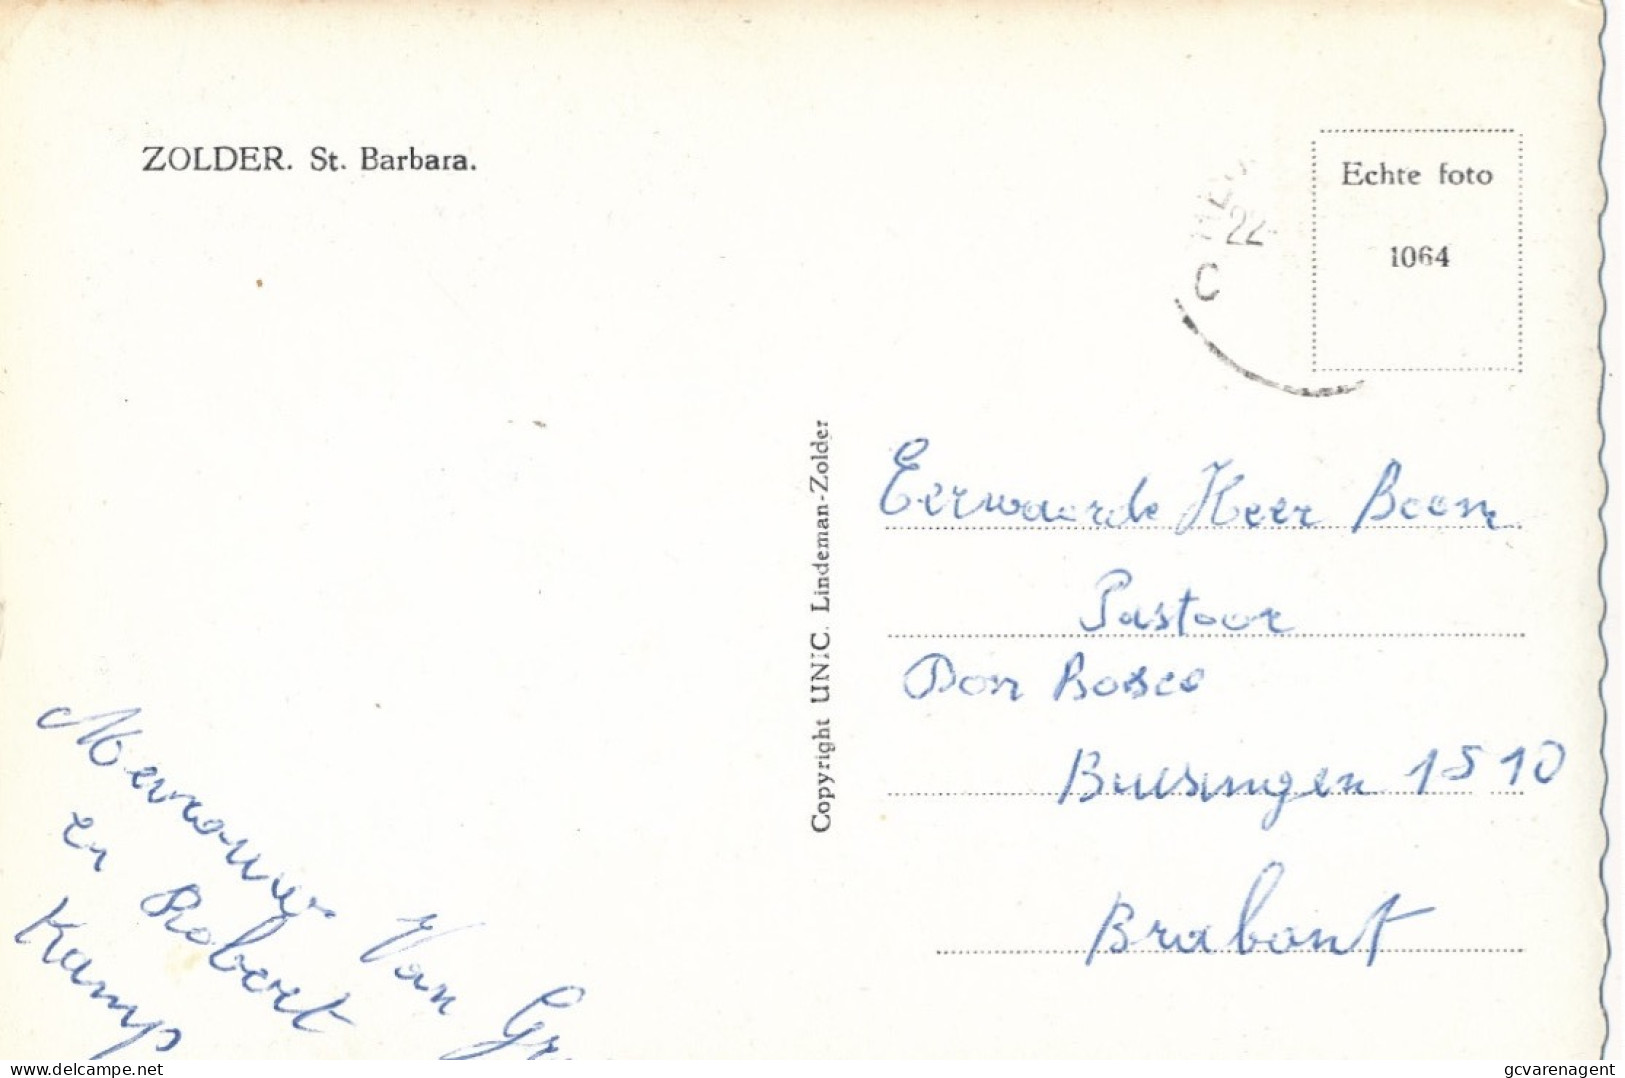 ZOLDER. St. Barbara.
Echte foto
1064
22
C
Copyright UNIC. Lindeman-Zolder
Eerwaarde Heer Boon
Pastoor
Don Bosco
Buisingen 1510
Brabant
Mevrouw Van
en Robert
Kamp
delcampe.net
gcvarenagent